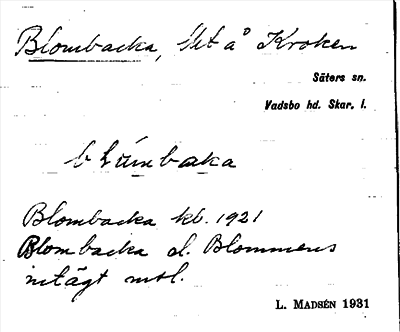 Blombacka, lht å Kroken
Säters sn.
Vadsbo hd. Skar. l.
blómbaka
Blombacka kb. 1921
Blombacka el. Blommens
intägt mtl.
L. MADSÉN 1931